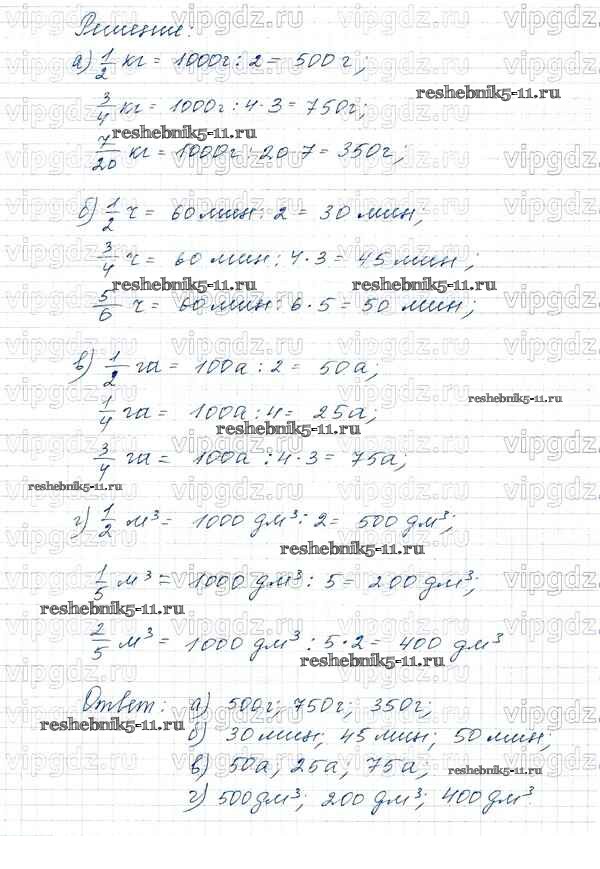 Решение:
а) 1/2 кг = 1000г : 2 = 500 г;
3/4 кг = 1000г : 4 · 3 = 750г;
7/20 кг = 1000г : 20 · 7 = 350г;
б) 1/2 ч = 60 мин : 2 = 30 мин;
3/4 ч = 60 мин : 4 · 3 = 45 мин;
5/6 ч = 60 мин : 6 · 5 = 50 мин;
в) 1/2 га = 100а : 2 = 50а;
1/4 га = 100а : 4 = 25а;
3/4 га = 100а : 4 · 3 = 75а;
г) 1/2 м³ = 1000 дм³ : 2 = 500 дм³;
1/5 м³ = 1000 дм³ : 5 = 200 дм³;
2/5 м³ = 1000 дм³ : 5 · 2 = 400 дм³
Ответ: а) 500г; 750г; 350г;
б) 30 мин; 45 мин; 50 мин;
в) 50а; 25а; 75а;
г) 500дм³; 200 дм³; 400дм³.
reshebnik5-11.ru
vipgdz.ru